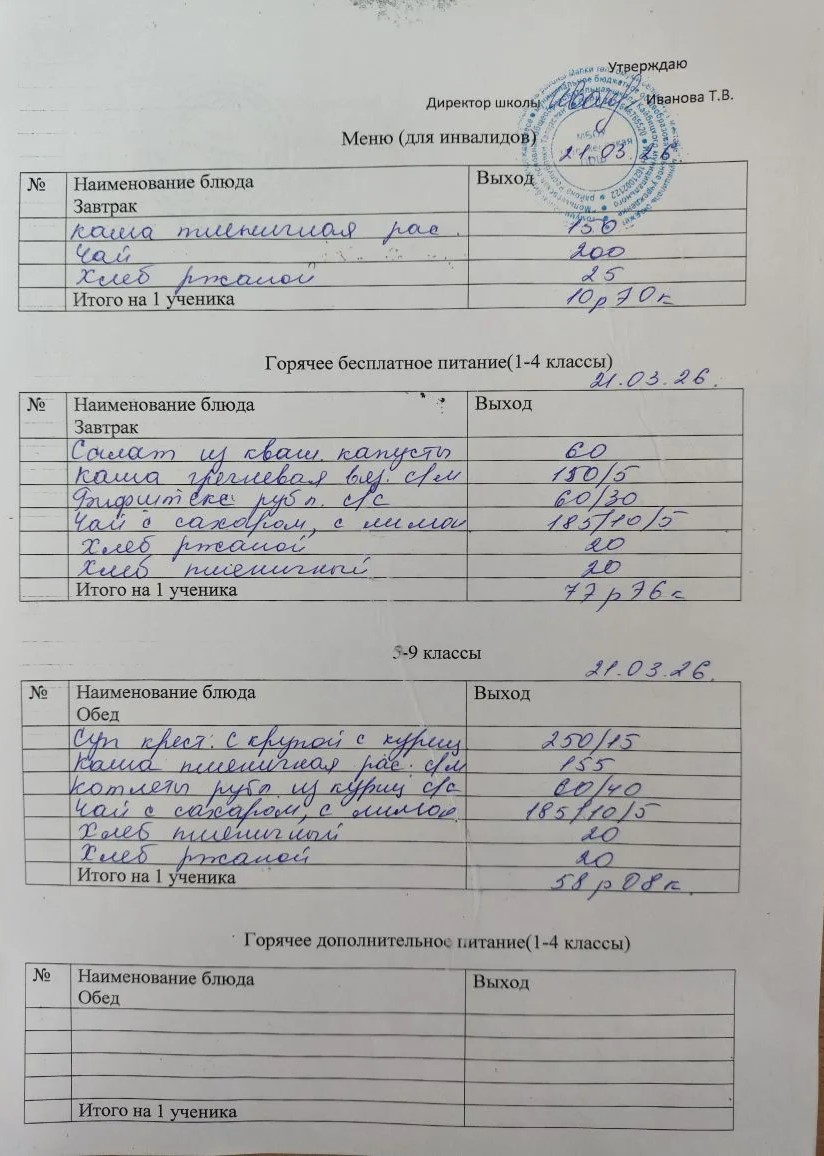 Утверждаю
Директор школы Иванова Т.В.
Меню (для инвалидов)
21.03.26.
№ Наименование блюда Выход
Завтрак
Каша пшеничная рас. 150
Чай 200
Хлеб ржаной 25
Итого на 1 ученика 10р70к
Горячее бесплатное питание(1-4 классы)
21.03.26.
№ Наименование блюда Выход
Завтрак
Салат из кваш. капусты 60
Каша гречневая вяз. с/м 150/5
Бифштекс рубл. с/с 60/30
Чай с сахаром, с лимон 185/10/5
Хлеб ржаной 20
Хлеб пшеничный 20
Итого на 1 ученика 77р76к
5-9 классы
21.03.26.
№ Наименование блюда Выход
Обед
Суп крест. с крупой с куриц 250/15
Каша пшеничная рас. с/м 155
Котлеты рубл. из куриц с/с 60/40
Чай с сахаром, с лимон 185/10/5
Хлеб пшеничный 20
Хлеб ржаной 20
Итого на 1 ученика 58р08к.
Горячее дополнительное питание(1-4 классы)
№ Наименование блюда Выход
Обед
Итого на 1 ученика